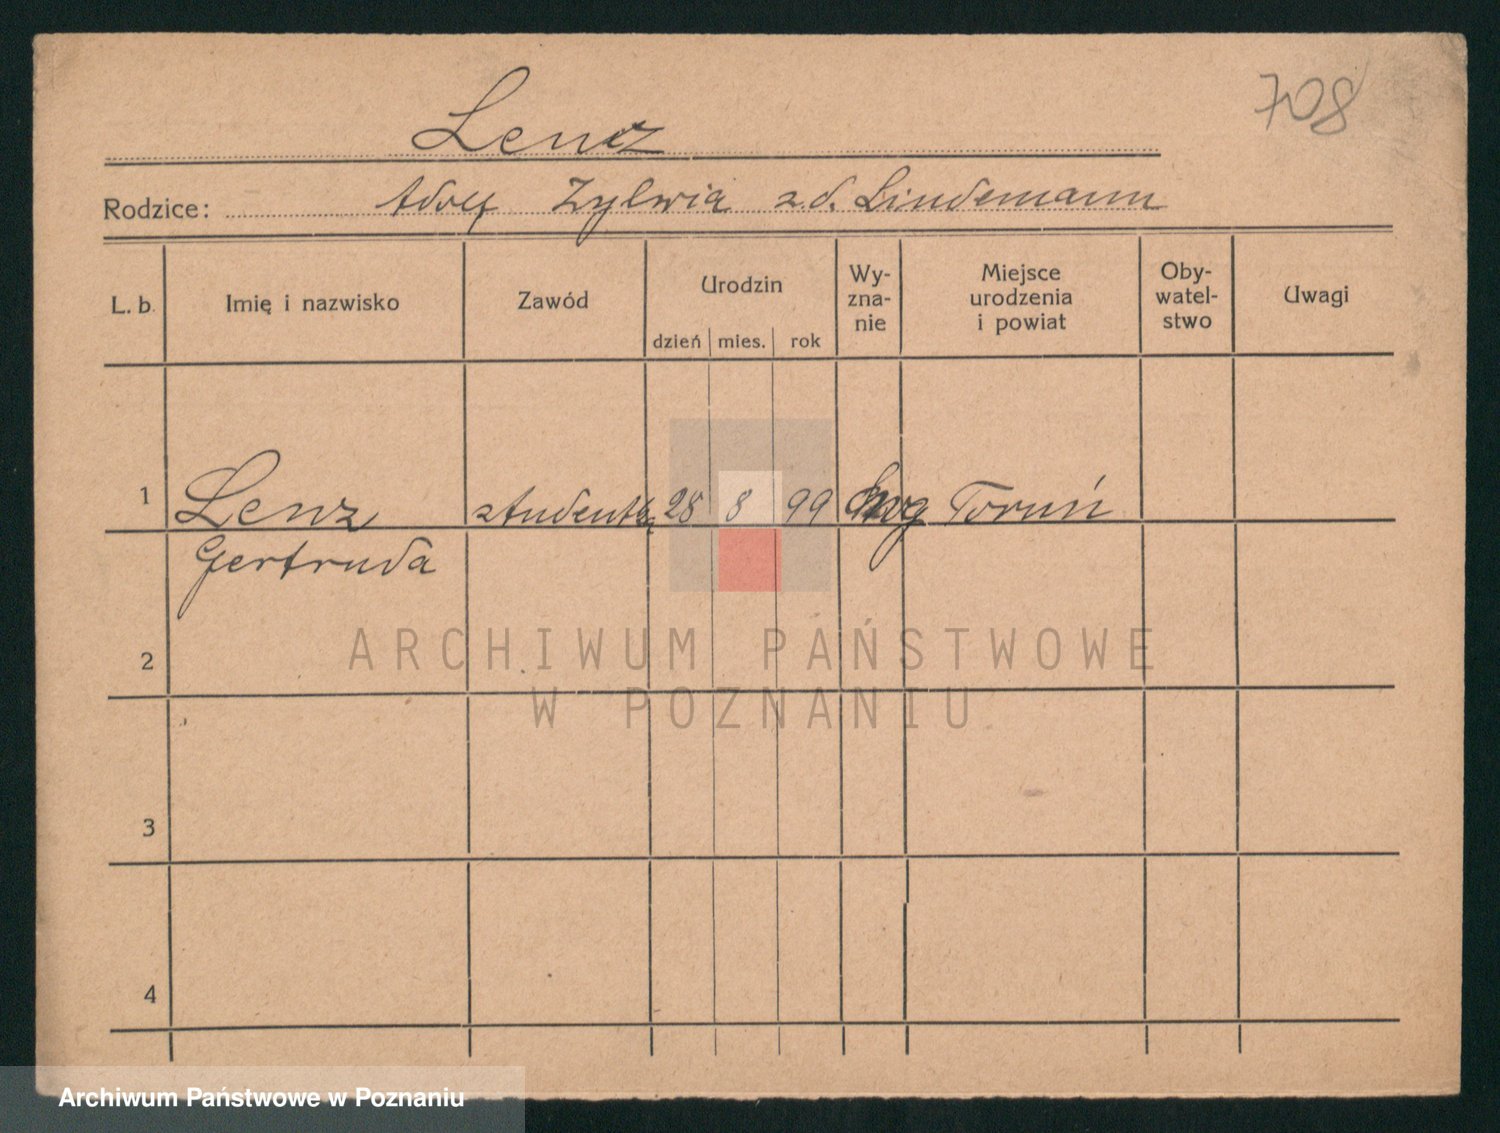 708
Lenz
Rodzice: Adolf Zylwia z.d. Lindemann
L. b. Imię i nazwisko Zawód Urodzin dzień mies. rok Wy-zna-nie Miejsce urodzenia i powiat Oby-watel-stwo Uwagi
1 Lenz studentka 28 8 99 ewg Toruń
Gertruda
2
3
4
ARCHIWUM PAŃSTWOWE
W POZNANIU
Archiwum Państwowe w Poznaniu